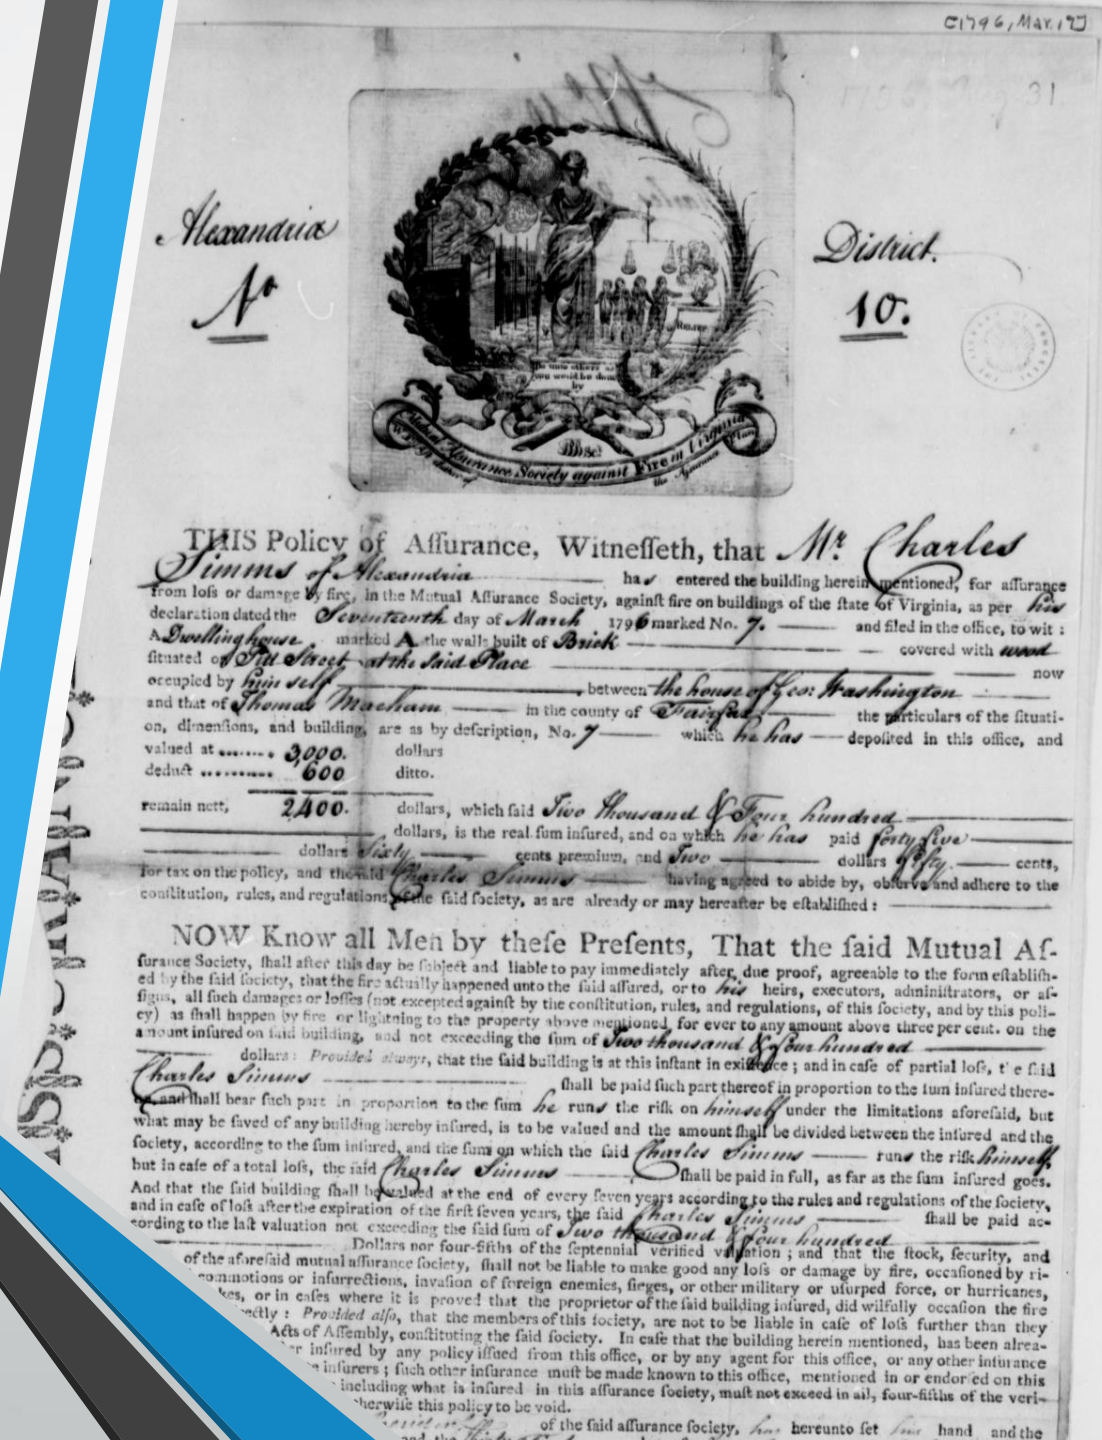 [1796, Mar. 17]
31
Alexandria
District.
No
10.
Do unto others as
you would be done
by
Mutual Assurance Society against Fire in Virginia
THIS Policy of Aſſurance, Witneſſeth, that Mr. Charles
Simms of Alexandria has entered the building herein mentioned, for aſſurance
from loſs or damage by fire, in the Mutual Aſſurance Society, againſt fire on buildings of the ſtate of Virginia, as per his
declaration dated the Seventeenth day of March 1796 marked No. 7. and filed in the office, to wit :
A Dwelling house marked A the walls built of Brick covered with wood
ſituated on Street at the said Place now
occupied by himself between the house of Geo: Washington
and that of Thomas in the county of Fairfax the particulars of the ſituati-
on, dimenſions, and building, are as by deſcription, No. 7 which he has depoſited in this office, and
valued at ........ 3,000. dollars
deduct .......... 600 ditto.
remain nett, 2,400. dollars, which ſaid Two thousand & Four hundred
dollars, is the real ſum inſured, and on which he has paid forty five
dollars Sixty cents premium, and Two dollars fifty cents,
for tax on the policy, and the ſaid Charles Simms having agreed to abide by, obſerve and adhere to the
conſtitution, rules, and regulations, of the ſaid ſociety, as are already or may hereafter be eſtabliſhed :
NOW Know all Men by theſe Preſents, That the ſaid Mutual Aſ-
ſurance Society, ſhall after this day be ſubject and liable to pay immediately after, due proof, agreeable to the form eſtabliſh-
ed by the ſaid ſociety, that the fire actually happened unto the ſaid aſſured, or to his heirs, executors, adminiſtrators, or aſ-
ſigns, all ſuch damages or loſſes (not excepted againſt by the conſtitution, rules, and regulations, of this ſociety, and by this poli-
cy) as ſhall happen by fire or lightning to the property above mentioned, for ever to any amount above three per cent. on the
amount inſured on ſaid building, and not exceeding the ſum of Two thousand & four hundred
dollars : Provided always, that the ſaid building is at this inſtant in exiſtence ; and in caſe of partial loſs, t e ſaid
Charles Simms ſhall be paid ſuch part thereof in proportion to the ſum inſured there-
on, and ſhall bear ſuch part in proportion to the ſum he runs the riſk on himself under the limitations aforeſaid, but
what may be ſaved of any building hereby inſured, is to be valued and the amount ſhall be divided between the inſured and the
ſociety, according to the ſum inſured, and the ſum on which the ſaid Charles Simms runs the riſk himself,
but in caſe of a total loſs, the ſaid Charles Simms ſhall be paid in full, as far as the ſum inſured goes.
And that the ſaid building ſhall be valued at the end of every ſeven years according to the rules and regulations of the ſociety,
and in caſe of loſs after the expiration of the firſt ſeven years, the ſaid Charles Simms ſhall be paid ac-
cording to the laſt valuation not exceeding the ſaid ſum of Two thousand & four hundred
Dollars nor four-fifths of the ſeptennial verified valuation ; and that the ſtock, ſecurity, and
of the aforeſaid mutual aſſurance ſociety, ſhall not be liable to make good any loſs or damage by fire, occaſioned by ri-
commotions or inſurrections, invaſion of foreign enemies, ſieges, or other military or uſurped force, or hurricanes,
kes, or in caſes where it is proved that the proprietor of the ſaid building inſured, did wilfully occaſion the fire
ectly : Provided alſo, that the members of this ſociety, are not to be liable in caſe of loſs further than they
Acts of Aſſembly, conſtituting the ſaid ſociety. In caſe that the building herein mentioned, has been alrea-
er inſured by any policy iſſued from this office, or by any agent for this office, or any other inſurance
e inſurers ; ſuch other inſurance muſt be made known to this office, mentioned in or endorſed on this
including what is inſured in this aſſurance ſociety, muſt not exceed in all, four-fifths of the veri-
therwiſe this policy to be void.
of the ſaid aſſurance ſociety, has hereunto ſet his hand and the